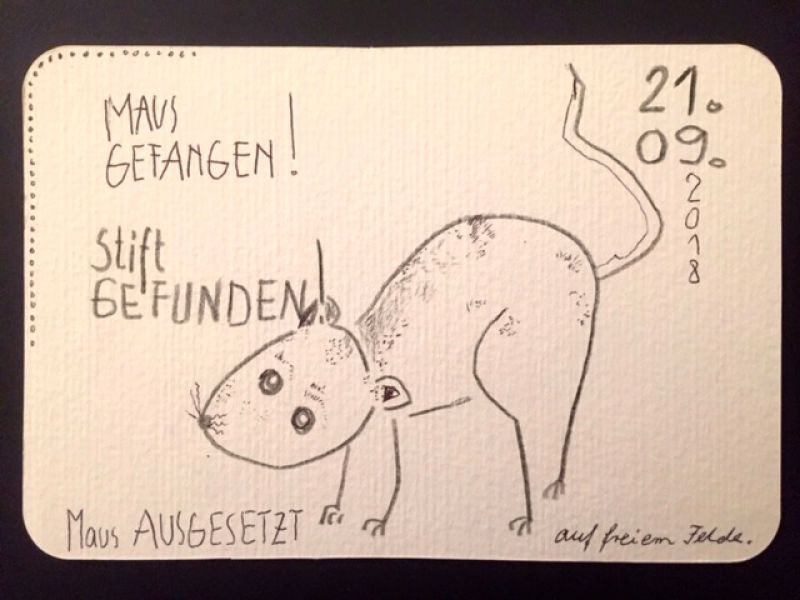 MAUS
GEFANGEN!
21.
09.
2018
Stift
GEFUNDEN!
Maus AUSGESETZT
auf freiem Felde.